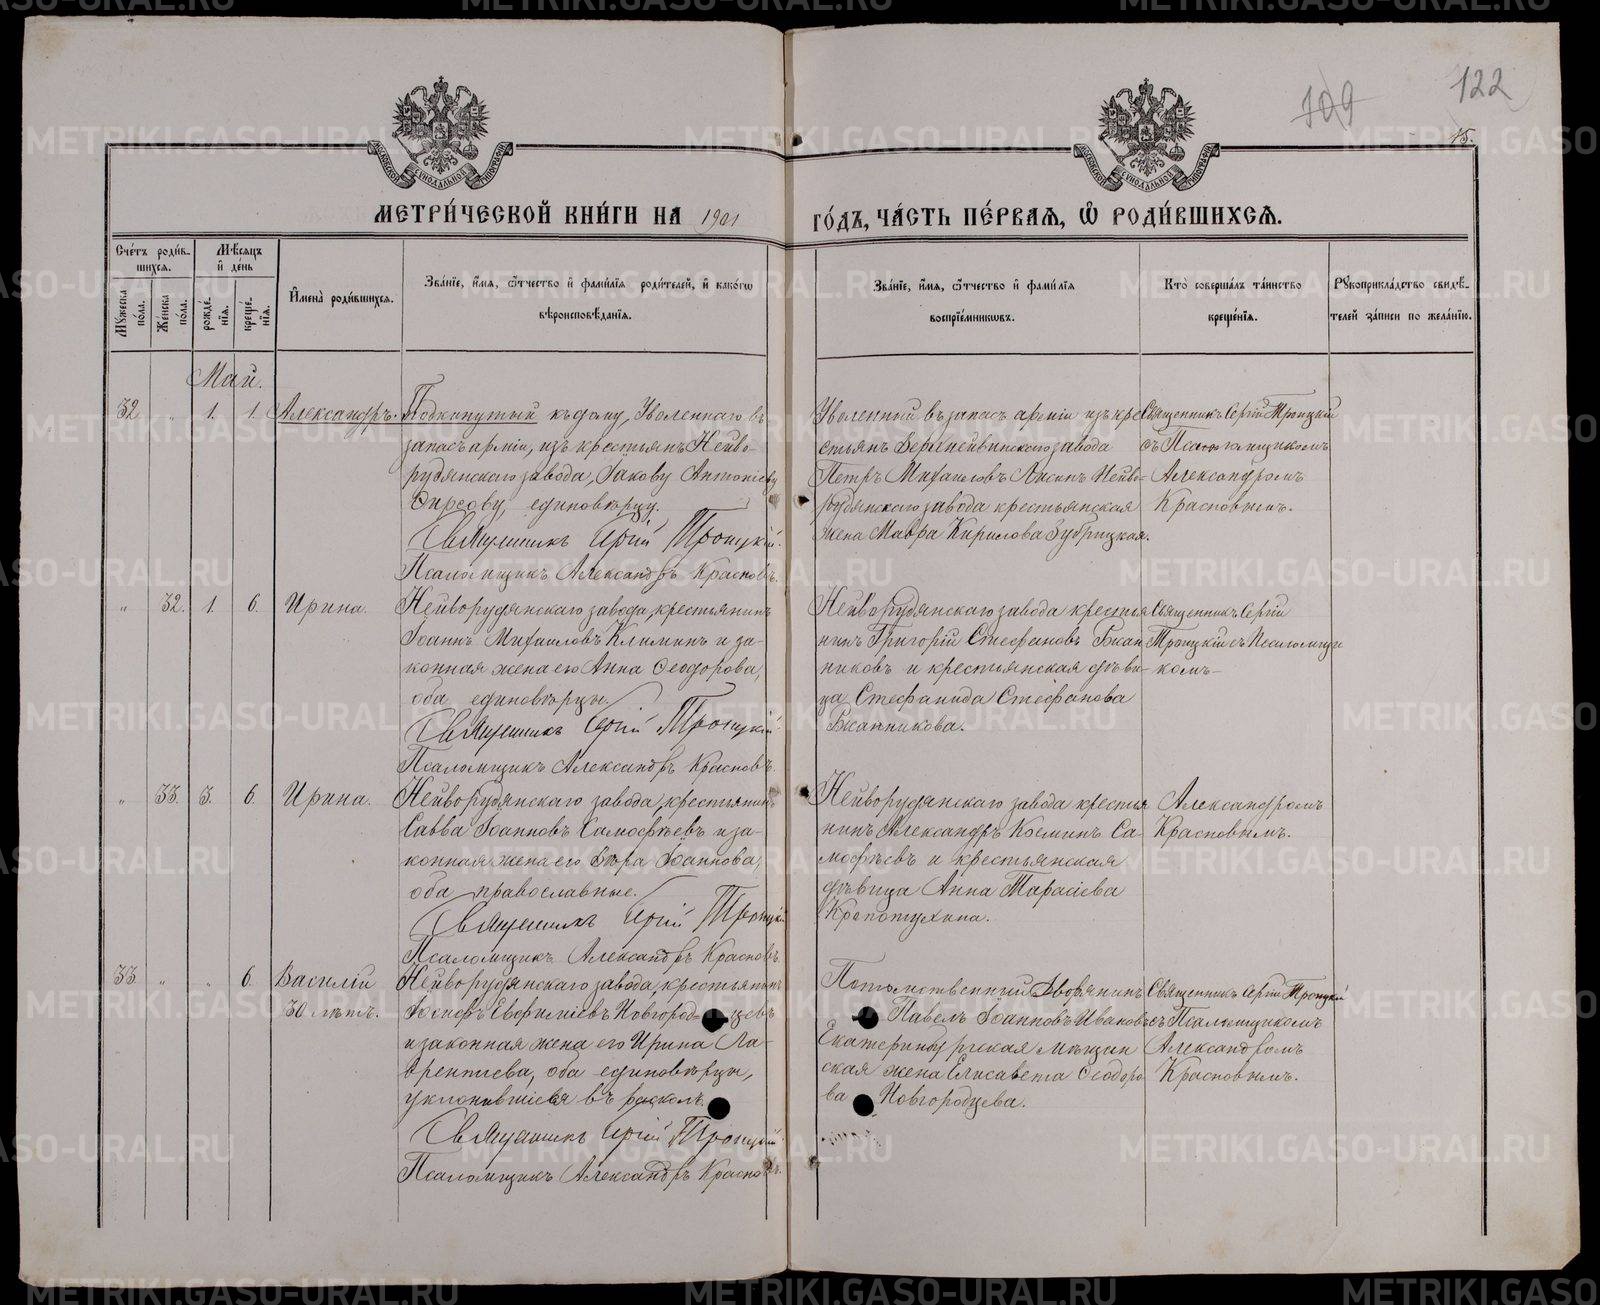 METRIKI.GASO-URAL.RU
109
122
15.
МОСКОВСКОЙ СѴНОДАЛЬНОЙ ТИПОГРАФІИ
МОСКОВСКОЙ СѴНОДАЛЬНОЙ ТИПОГРАФІИ
МЕТРИ́ЧЕСКОЙ КНИ́ГИ НА 1901 ГО́ДЪ, ЧА́СТЬ ПЕ́РВАѦ, Ѽ РОДИ́ВШИХСѦ.
Счётъ роди́в-
шихсѧ.
Мꙋ́жеска по́ла.
Же́нска по́ла.
Мѣ́сѧцъ
и҆ де́нь
рожде́-
нїѧ.
креще́-
нїѧ.
И҆мена̀ роди́вшихсѧ.
Зва́нїе, и҆́мѧ, ѻ҆́тчество и҆ фами́лїѧ роди́телей, и҆ како́гѡ
вѣроисповѣ́данїѧ.
Зва́нїе, и҆́мѧ, ѻ҆́тчество и҆ фами́лїѧ
воспрїе́мникѡвъ.
Кто̀ соверша́лъ та́инство
креще́нїѧ.
Рꙋкоприкла́дство свидѣ́-
телей за́писи по жела́нїю.
Май.
32 " 1. 1. Александръ.
Подкинутый къ дому, Уволеннаго въ
запасъ арміи, изъ крестьянъ Нейво-
рудянскаго завода, Іакову Антоніеву
Фирсову, единовѣрцу.
Священникъ Сергій Троицкій.
Псаломщикъ Александръ Красновъ.
Уволенный въ запасъ арміи изъ кре-
стьянъ Верхнейвинскаго завода
Петръ Михаиловъ Нейво-
рудянскаго завода крестьянская
жена Мавра Кирилова Зубрицкая.
Священникъ Сергій Троицкій
съ Псаломщикомъ
Александромъ
Красновымъ.
" 32. 1. 6. Ирина.
Нейворудянскаго завода, крестьянинъ
Іоаннъ Михаиловъ Климинъ и за-
конная жена его Анна Ѳеодорова,
оба единовѣрцы.
Священникъ Сергій Троицкій.
Псаломщикъ Александръ Красновъ.
Нейворудянскаго завода крестья-
нинъ Григорій Стефановъ
никовъ и крестьянская дѣви-
ца Стефанида Стефанова
Священникъ Сергій
Троицкій съ Псаломщи-
комъ-
" 33. 3. 6. Ирина.
Нейворудянскаго завода, крестьянинъ
Савва Іоанновъ Самофѣевъ и за-
конная жена его Вѣра Іоаннова,
оба православные.
Священникъ Сергій Троицкій
Псаломщикъ Александръ Красновъ.
Нейворудянскаго завода крестья
нинъ Александръ Космин Са-
мофѣевъ и крестьянская
дѣвица Анна Тарасіева
Кропотухина.
Александромъ
Красновымъ.
33 " " 6. Василій
30 лѣтъ.
Нейворудянскаго завода, крестьянинъ
Іосифъ Евфиміевъ Новгород-цевъ
и законная жена его Ирина Ла-
врентиева, оба единовѣрцы,
уклонившіеся въ расколъ.
Священникъ Сергій Троицкій
Псаломщикъ Александръ Красновъ.
Потомственный Дворянинъ
Павелъ Іоанновъ Ивановъ
Екатеринбургская мѣщан
ская жена Елисавета Ѳеодоро
ва Новгородцева.
Священникъ Сергій Троицкій
съ Псаломщикомъ
Александромъ
Красновымъ.